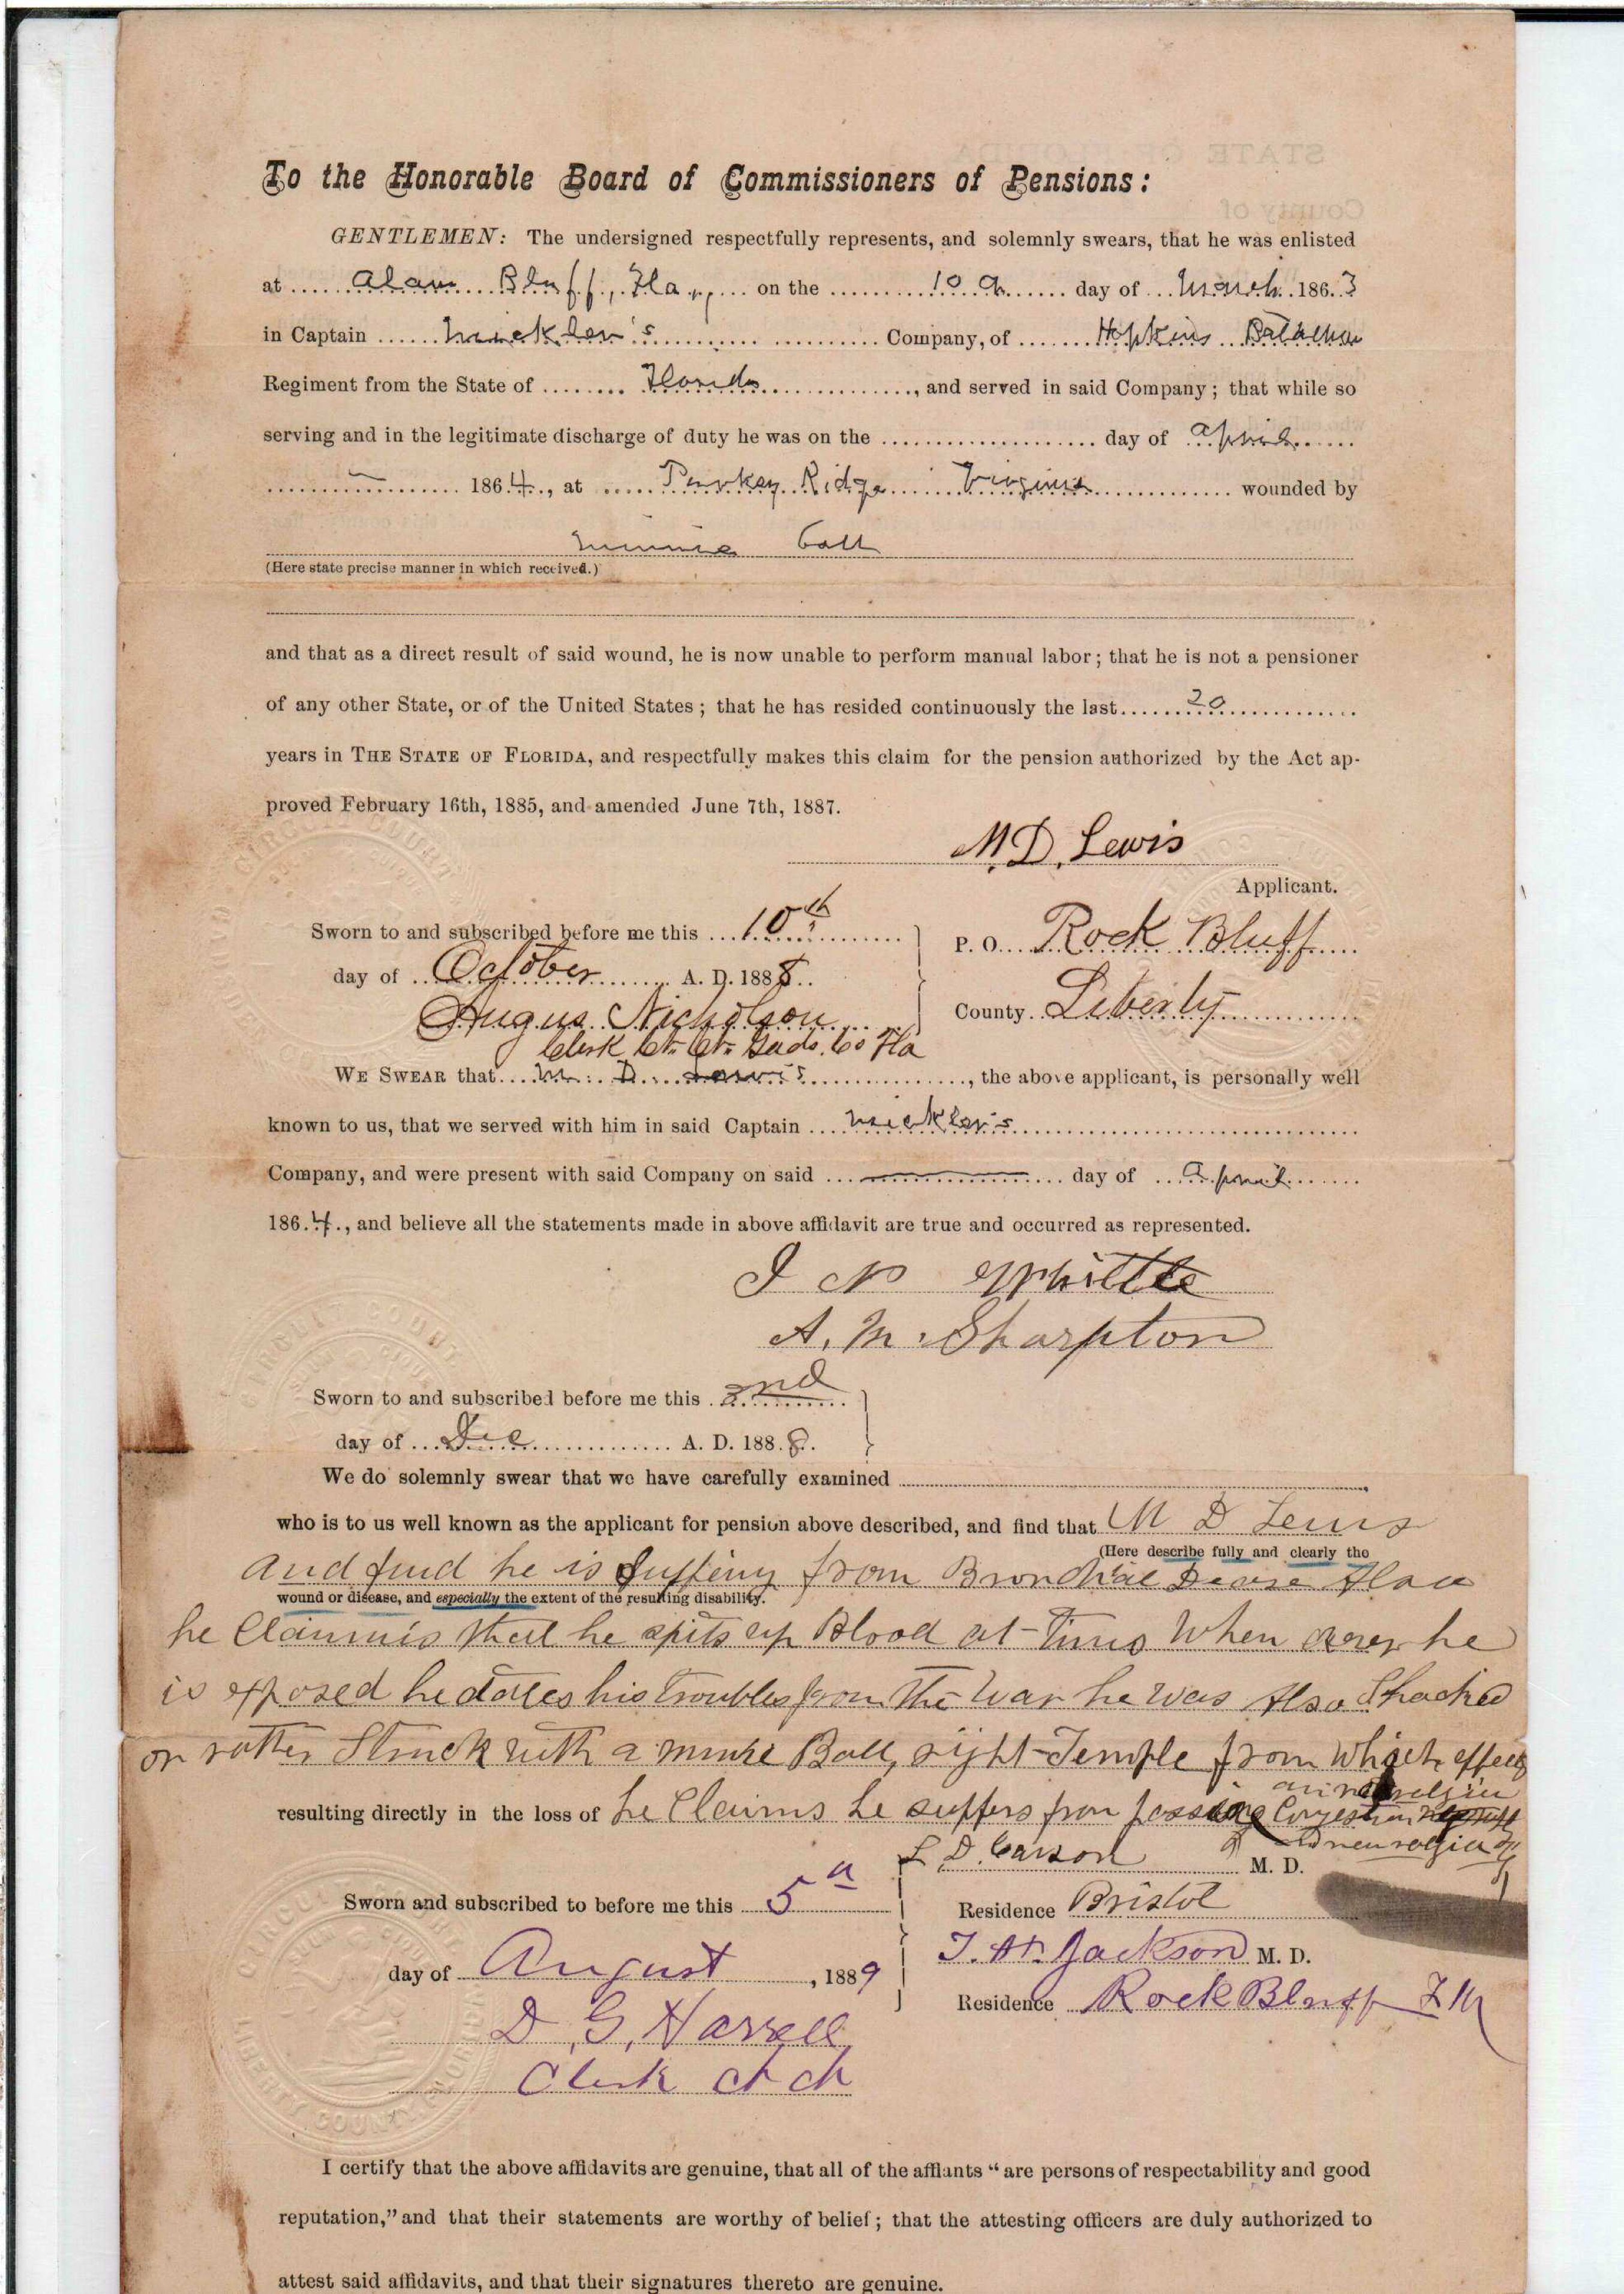 To the Honorable Board of Commissioners of Pensions:
GENTLEMEN: The undersigned respectfully represents, and solemnly swears, that he was enlisted
at Alam Bluff, Fla, on the 10 day of March 1863
in Captain Mickler's Company, of Hopkins Batalion
Regiment from the State of Florida, and served in said Company; that while so
serving and in the legitimate discharge of duty he was on the day of April
1864, at Turkey Ridge Virginia wounded by
minnie ball
(Here state precise manner in which received.)
and that as a direct result of said wound, he is now unable to perform manual labor; that he is not a pensioner
of any other State, or of the United States; that he has resided continuously the last 20
years in THE STATE OF FLORIDA, and respectfully makes this claim for the pension authorized by the Act ap-
proved February 16th, 1885, and amended June 7th, 1887.
M. D. Lewis
Applicant.
Sworn to and subscribed before me this 10th
day of October A. D. 1888
Angus Nicholson
Clerk Ct. Ct. Gads. Co Fla
P. O. Rock Bluff
County Liberty
WE SWEAR that M. D. Lewis, the above applicant, is personally well
known to us, that we served with him in said Captain Mickler's
Company, and were present with said Company on said day of April
1864, and believe all the statements made in above affidavit are true and occurred as represented.
J N Whittle
A. M. Sharpton
Sworn to and subscribed before me this 2nd
day of Dec A. D. 1888.
We do solemnly swear that we have carefully examined
who is to us well known as the applicant for pension above described, and find that M D Lewis
(Here describe fully and clearly the
and find he is suffering from Bronchial
wound or disease, and especially the extent of the resulting disability.
he Claimes that he spits up Blood at times When ever he
is exposed he dates his troubles from the War he was Also Shocked
or rather Struck with a minnie Ball, right Temple from which effects
resulting directly in the loss of he Claims he suffers from
neuralgia
L D. Carson M. D.
Sworn and subscribed to before me this 5
Residence Bristol
day of August, 1889
T. H. Jackson M. D.
Residence Rock Bluff Fla
D. G. Harrell
Clerk ct ct
CIRCUIT COURT
LIBERTY COUNTY, FLORIDA
I certify that the above affidavits are genuine, that all of the affiants "are persons of respectability and good
reputation," and that their statements are worthy of belief; that the attesting officers are duly authorized to
attest said affidavits, and that their signatures thereto are genuine.